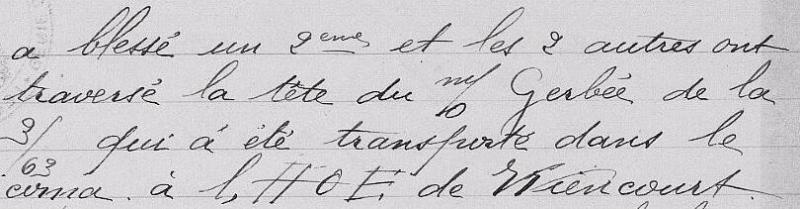 a blessé un 2eme et les 2 autres ont
traversé la tête du m/o Gerbée de la
3/63 qui á été transporté dans le
coma à l, H O E, de Wiencourt.